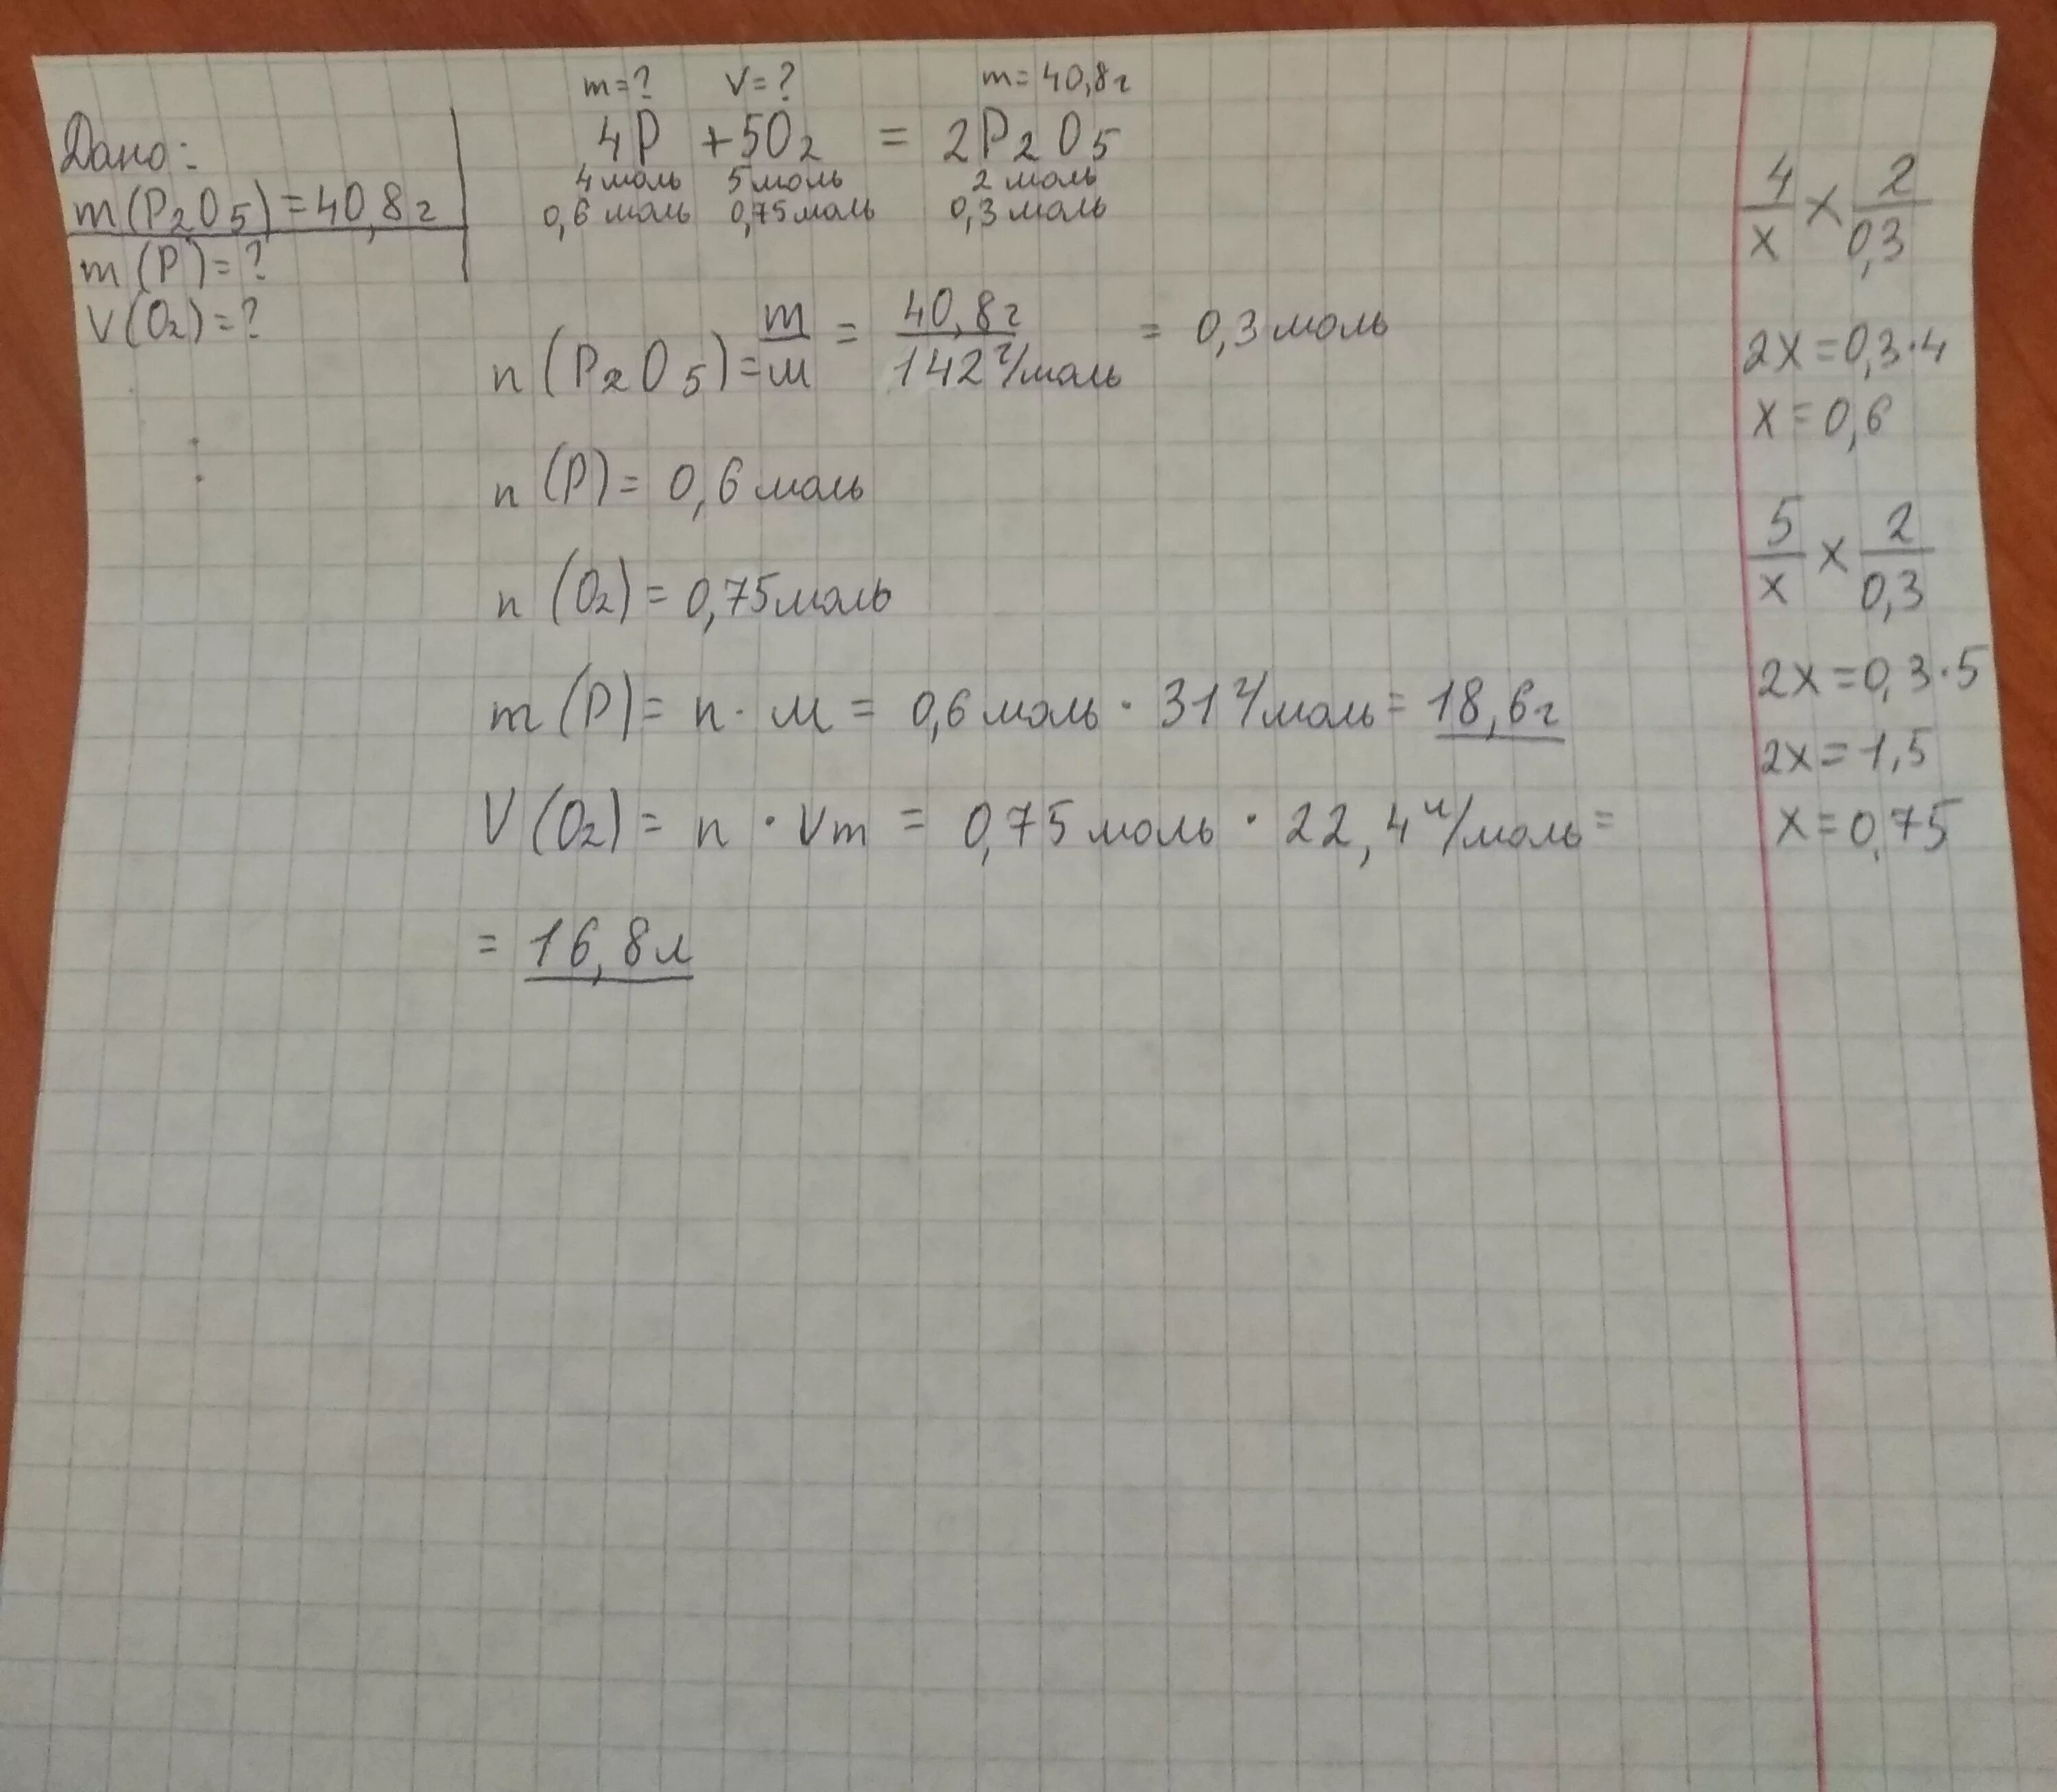 Дано:
m(P2O5)=40,8г
m(P)=?
V(O2)=?
m=? V=? m=40,8г
4P +5O2 = 2P2O5
4моль 5моль 2 моль
0,6 моль 0,75моль 0,3моль
n(P2O5)=m/M = 40,8г/142г/моль = 0,3моль
n(P)= 0,6моль
n(O2)= 0,75моль
m(P)= n·M = 0,6моль · 31г/моль= 18,6г
V(O2)= n·Vm = 0,75моль · 22,4л/моль=
= 16,8л
4/x × 2/0,3
2x=0,3·4
x=0,6
5/x × 2/0,3
2x=0,3·5
2x=1,5
x=0,75